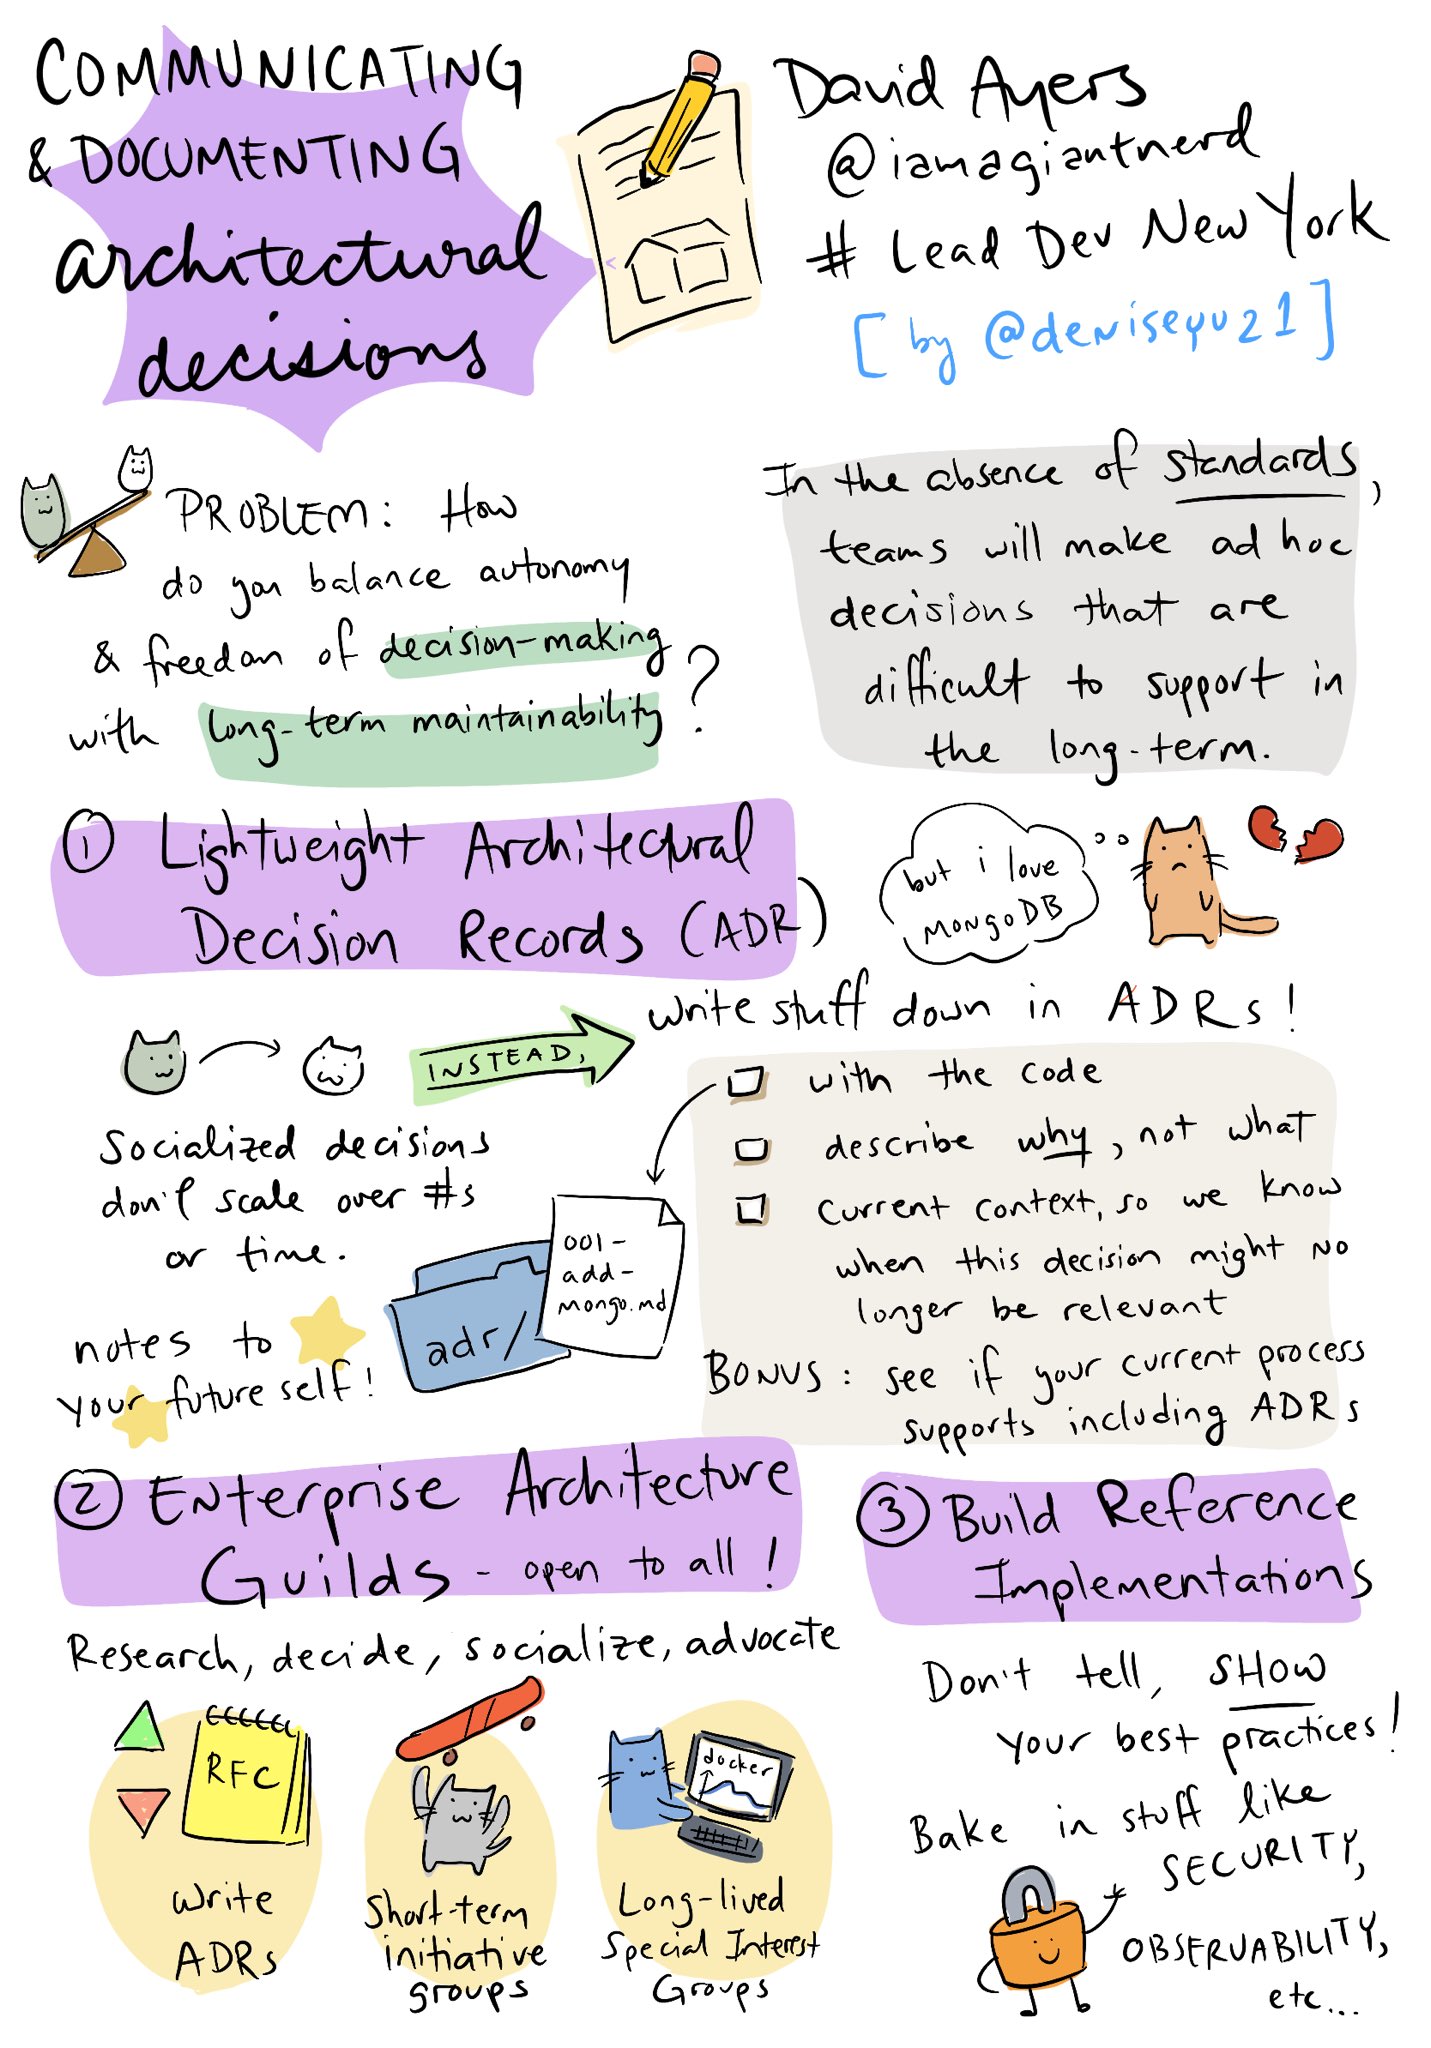 COMMUNICATING
& DOCUMENTING
architectural
decisions
David Ayers
@iamagiantnerd
# Lead Dev New York
[by @deniseyu21]
PROBLEM: How
do you balance autonomy
& freedom of decision-making
with long-term maintainability?
In the absence of standards,
teams will make ad hoc
decisions that are
difficult to support in
the long-term.
① Lightweight Architectural
Decision Records (ADR)
but i love
MONGODB
Socialized decisions
don't scale over #s
or time.
INSTEAD,
write stuff down in ADRs!
with the code
describe why, not what
current context, so we know
when this decision might no
longer be relevant
BONUS: see if your current process
supports including ADRs
adr/
001-
add-
mongo.md
notes to
your future self!
② Enterprise Architecture
Guilds - open to all!
Research, decide, socialize, advocate
RFC
Write
ADRs
Short-term
initiative
groups
docker
Long-lived
Special Interest
Groups
③ Build Reference
Implementations
Don't tell, SHOW
your best practices!
Bake in stuff like
SECURITY,
OBSERVABILITY,
etc...